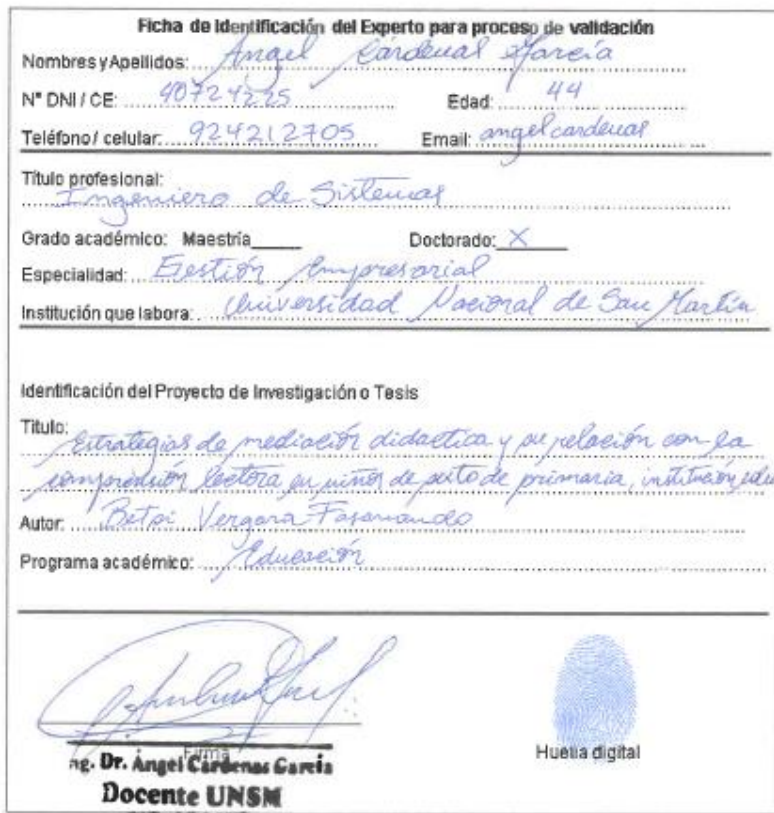 Ficha de Identificación del Experto para proceso de validación
Nombres y Apellidos: Angel Cárdenas García
N° DNI / CE: 40724225 Edad: 44
Teléfono / celular: 924212705 Email: angelcardenas
Título profesional:
Ingeniero de Sistemas
Grado académico: Maestría Doctorado: X
Especialidad: Gestión Empresarial
Institución que labora: Universidad Nacional de San Martín
Identificación del Proyecto de Investigación o Tesis
Titulo:
Estrategias de mediación didactica y su relación con la
comprensión lectora en niños de sexto de primaria, institución edu
Autor: Betsi Vergara Fasanando
Programa académico: Educación
Firma
Huella digital
ng. Dr. Angel Cárdenas García
Docente UNSM